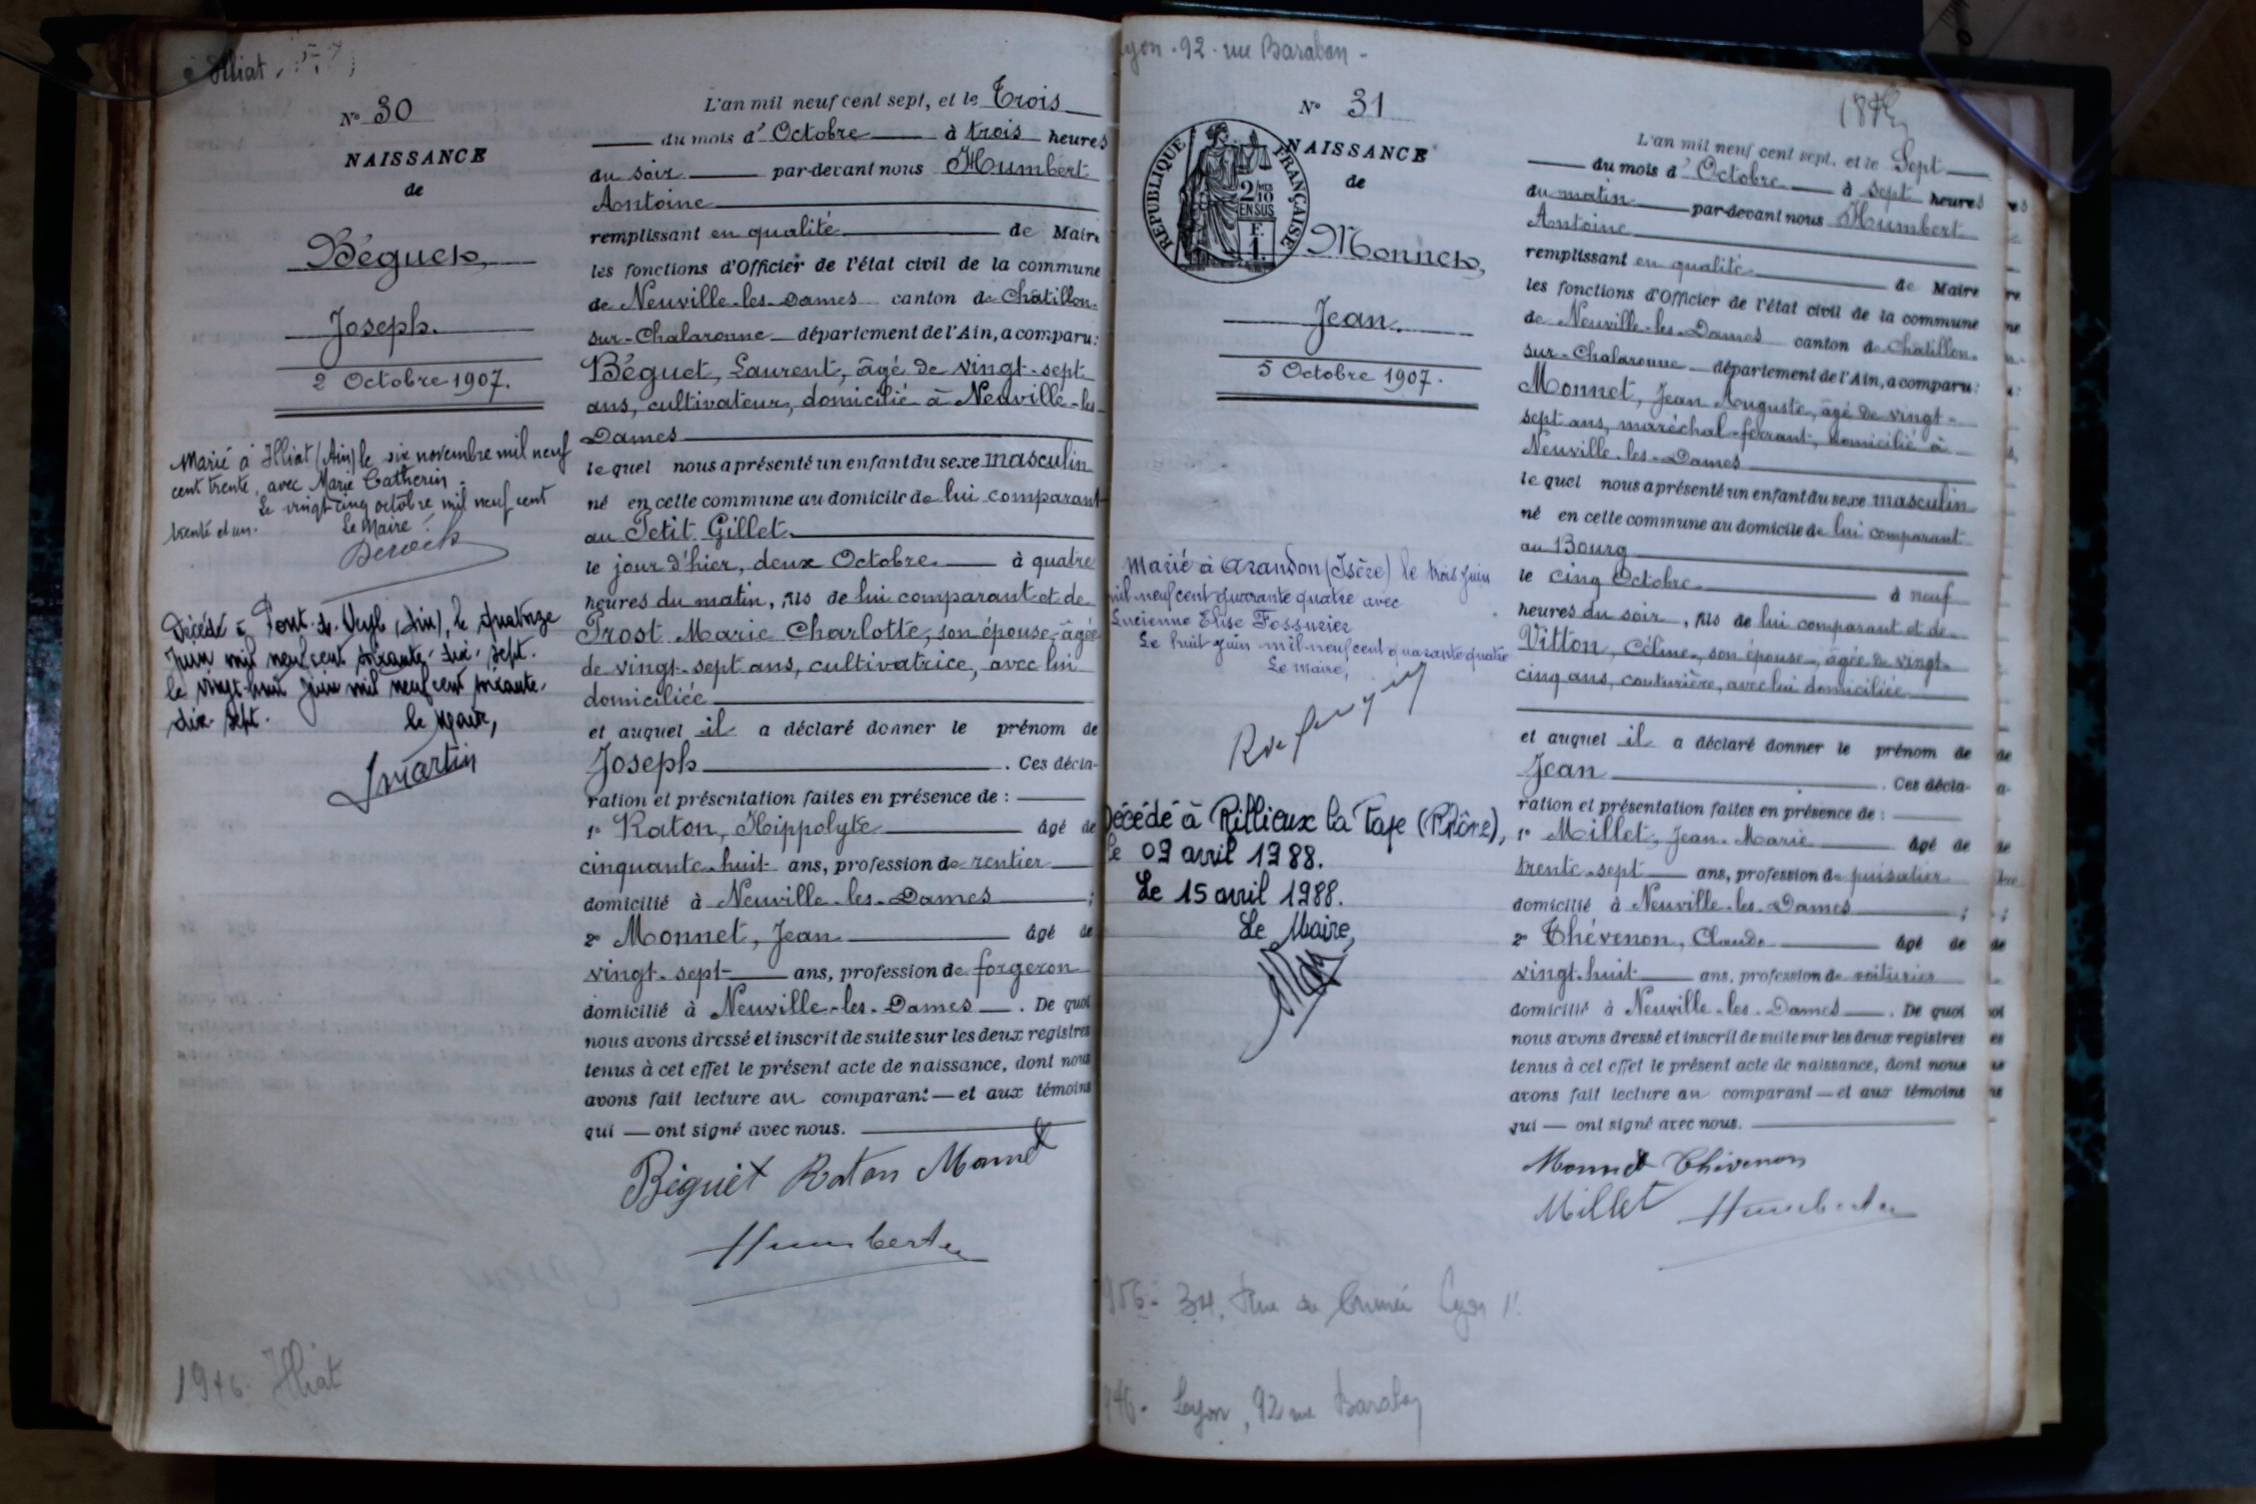 à Illiat
N° 30
NAISSANCE
de
Béguet,
Joseph.
2 Octobre 1907.
Marié à Illiat (Ain) le six novembre mil neuf
cent trente, avec Marie Catherin.
Le vingt-cinq octobre mil neuf cent
trente et un. Le Maire :
Décédé à Pont-de-Veyle (Ain), le quatorze
juin mil neuf cent soixante-dix-sept.
le vingt-huit juin mil neuf cent soixante-
dix-sept. le Maire,
Martin
1946. Illiat
L'an mil neuf cent sept, et le Trois
du mois d'Octobre à trois heures
du soir par-devant nous Humbert
Antoine
remplissant en qualité de Maire
les fonctions d'Officier de l'état civil de la commune
de Neuville-les-Dames canton de Châtillon-
sur-Chalaronne département de l'Ain, a comparu:
Béguet, Laurent, âgé de vingt-sept
ans, cultivateur, domicilié à Neuville-les-
Dames
le quel nous a présenté un enfant du sexe masculin
né en cette commune au domicile de lui comparant
au Petit Gillet.
le jour d'hier, deux Octobre à quatre
heures du matin, fils de lui comparant et de
Prost Marie Charlotte, son épouse, âgée
de vingt-sept ans, cultivatrice, avec lui
domiciliée
et auquel il a déclaré donner le prénom de
Joseph . Ces décla-
ration et présentation faites en présence de :
1° Raton, Hippolyte âgé de
cinquante-huit ans, profession de rentier
domicilié à Neuville-les-Dames ;
2° Monnet, Jean âgé de
vingt-sept ans, profession de forgeron
domicilié à Neuville-les-Dames . De quoi
nous avons dressé et inscrit de suite sur les deux registres
tenus à cet effet le présent acte de naissance, dont nous
avons fait lecture au comparant — et aux témoins
qui — ont signé avec nous.
Béguet Raton Monnet
Humbert
Lyon . 92 . rue Baraban -
N° 31
NAISSANCE
de
RÉPUBLIQUE FRANÇAISE
2/10 EN SUS
F. 1.
Monnet,
Jean.
5 Octobre 1907.
Marié à Arandon (Isère) le trois juin
mil neuf cent quarante quatre avec
Lucienne Elise Fossurier
Le huit juin mil-neuf cent quarante quatre
Le Maire,
Décédé à Rillieux la Pape (Rhône),
le 09 avril 1988.
Le 15 avril 1988.
Le Maire,
34, Rue de Crimée Lyon 1
Lyon, 92 rue Baraban
L'an mil neuf cent sept, et le Sept
du mois d'Octobre à sept heures
du matin par-devant nous Humbert
Antoine
remplissant en qualité de Maire
les fonctions d'Officier de l'état civil de la commune
de Neuville-les-Dames canton de Châtillon-
sur-Chalaronne département de l'Ain, a comparu:
Monnet, Jean Auguste, âgé de vingt-
sept ans, maréchal-ferrant, domicilié à
Neuville-les-Dames
le quel nous a présenté un enfant du sexe masculin
né en cette commune au domicile de lui comparant
au Bourg
le cinq Octobre à neuf
heures du soir, fils de lui comparant et de
Vitton, Céline, son épouse, âgée de vingt-
cinq ans, couturière, avec lui domiciliée
et auquel il a déclaré donner le prénom de
Jean . Ces décla-
ration et présentation faites en présence de :
1° Millet, Jean-Marie âgé de
trente-sept ans, profession de puisatier
domicilié à Neuville-les-Dames ;
2° Thévenon, Claude âgé de
vingt-huit ans, profession de voiturier
domicilié à Neuville-les-Dames . De quoi
nous avons dressé et inscrit de suite sur les deux registres
tenus à cet effet le présent acte de naissance, dont nous
avons fait lecture au comparant — et aux témoins
qui — ont signé avec nous.
Monnet Thévenon
Millet Humbert